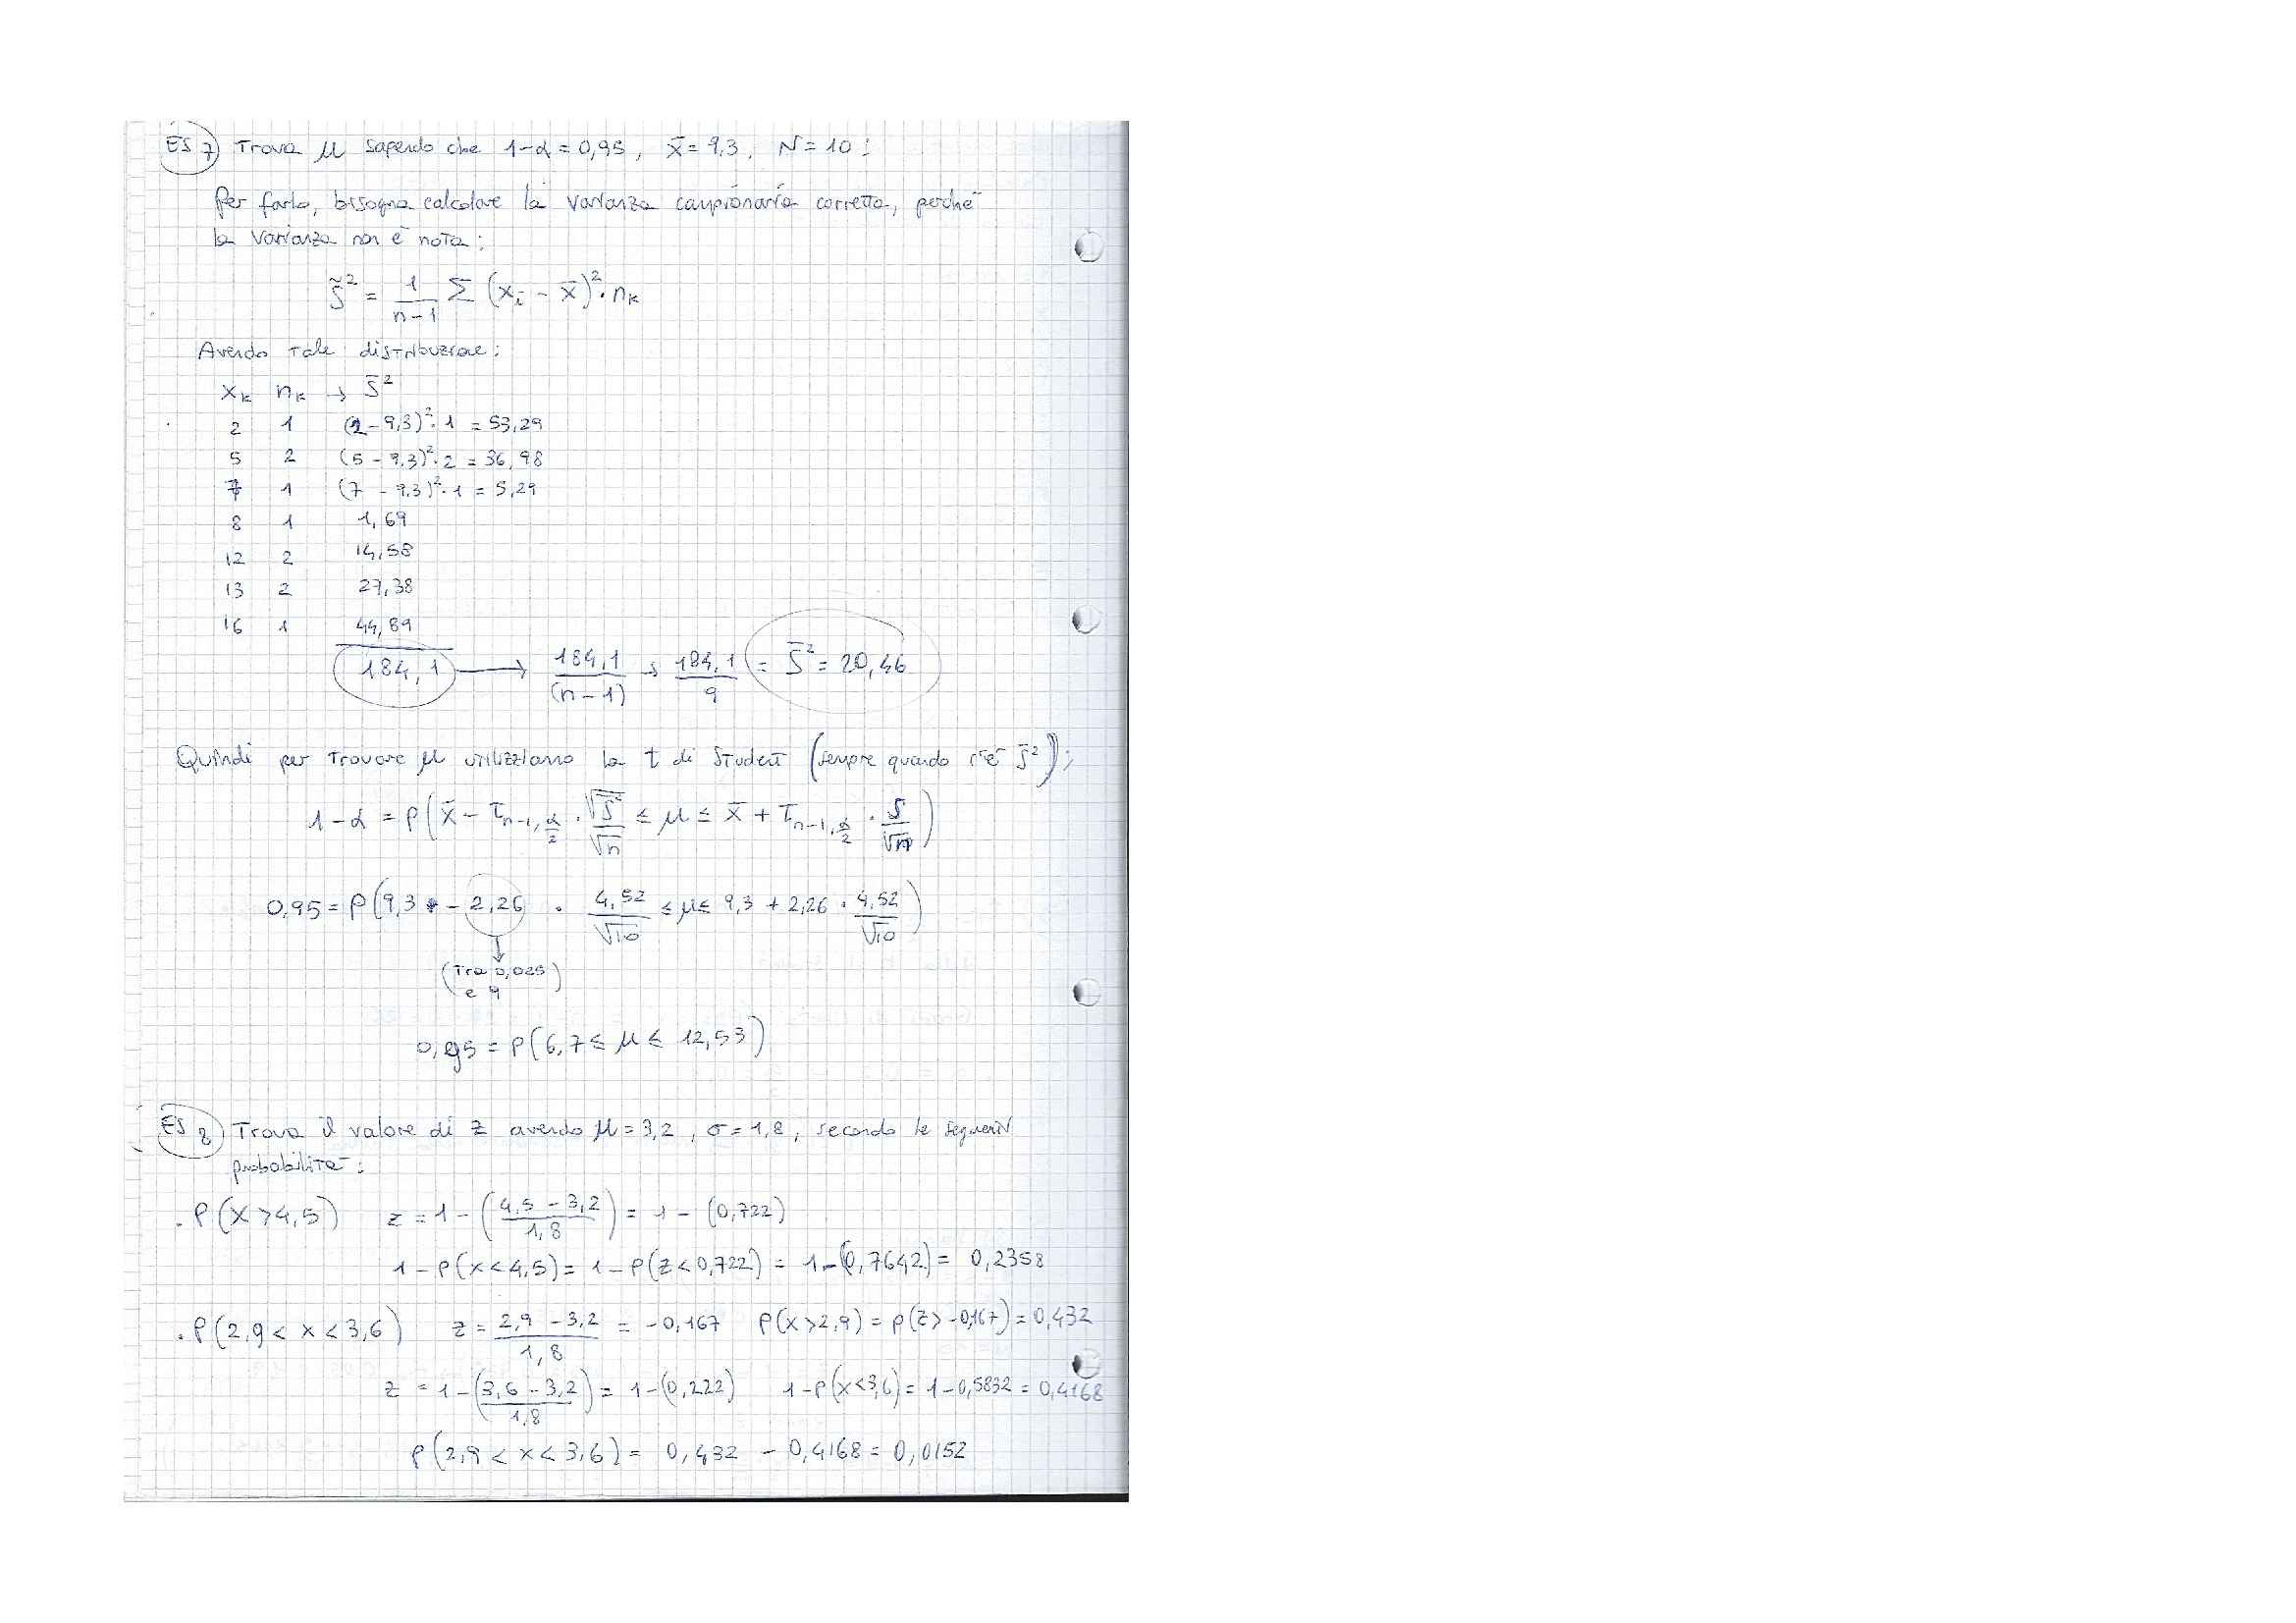 ES 7) Trova μ sapendo che 1-α = 0,95, x̄ = 9,3, N = 10:
Per farlo, bisogna calcolare la varianza campionaria corretta, perché
la varianza non è nota:
s̃² = 1/(n-1) Σ (xᵢ - x̄)² · nₖ
Avendo tale distribuzione:
xₖ nₖ → s̄²
2 1 (2-9,3)²·1 = 53,29
5 2 (5-9,3)²·2 = 36,98
7 1 (7-9,3)²·1 = 5,29
8 1 1,69
12 2 14,58
13 2 27,38
16 1 44,89
184,1 → 184,1/(n-1) → 184,1/9 = s̄² = 20,46
Quindi per trovare μ utilizziamo la t di Student (sempre quando c'è s̄²);
1-α = P(x̄ - tₙ₋₁,α/2 · √s̄²/√n ≤ μ ≤ x̄ + tₙ₋₁,α/2 · s/√n)
0,95 = P(9,3 - 2,26 · 4,52/√10 ≤ μ ≤ 9,3 + 2,26 · 4,52/√10)
(Tra 0,025
e 9)
0,95 = P(6,7 ≤ μ ≤ 12,53)
ES 8) Trova il valore di z avendo μ = 3,2, σ = 1,8, secondo le seguenti
probabilità:
. P(X > 4,5) z = 1 - (4,5 - 3,2 / 1,8) = 1 - (0,722)
1 - P(x < 4,5) = 1 - P(z < 0,722) = 1 - (0,7642) = 0,2358
. P(2,9 < x < 3,6) z = 2,9 - 3,2 / 1,8 = -0,167 P(x > 2,9) = P(z > -0,167) = 0,432
z = 1 - (3,6 - 3,2 / 1,8) = 1 - (0,222) 1 - P(x < 3,6) = 1 - 0,5832 = 0,4168
P(2,9 < x < 3,6) = 0,432 - 0,4168 = 0,0152